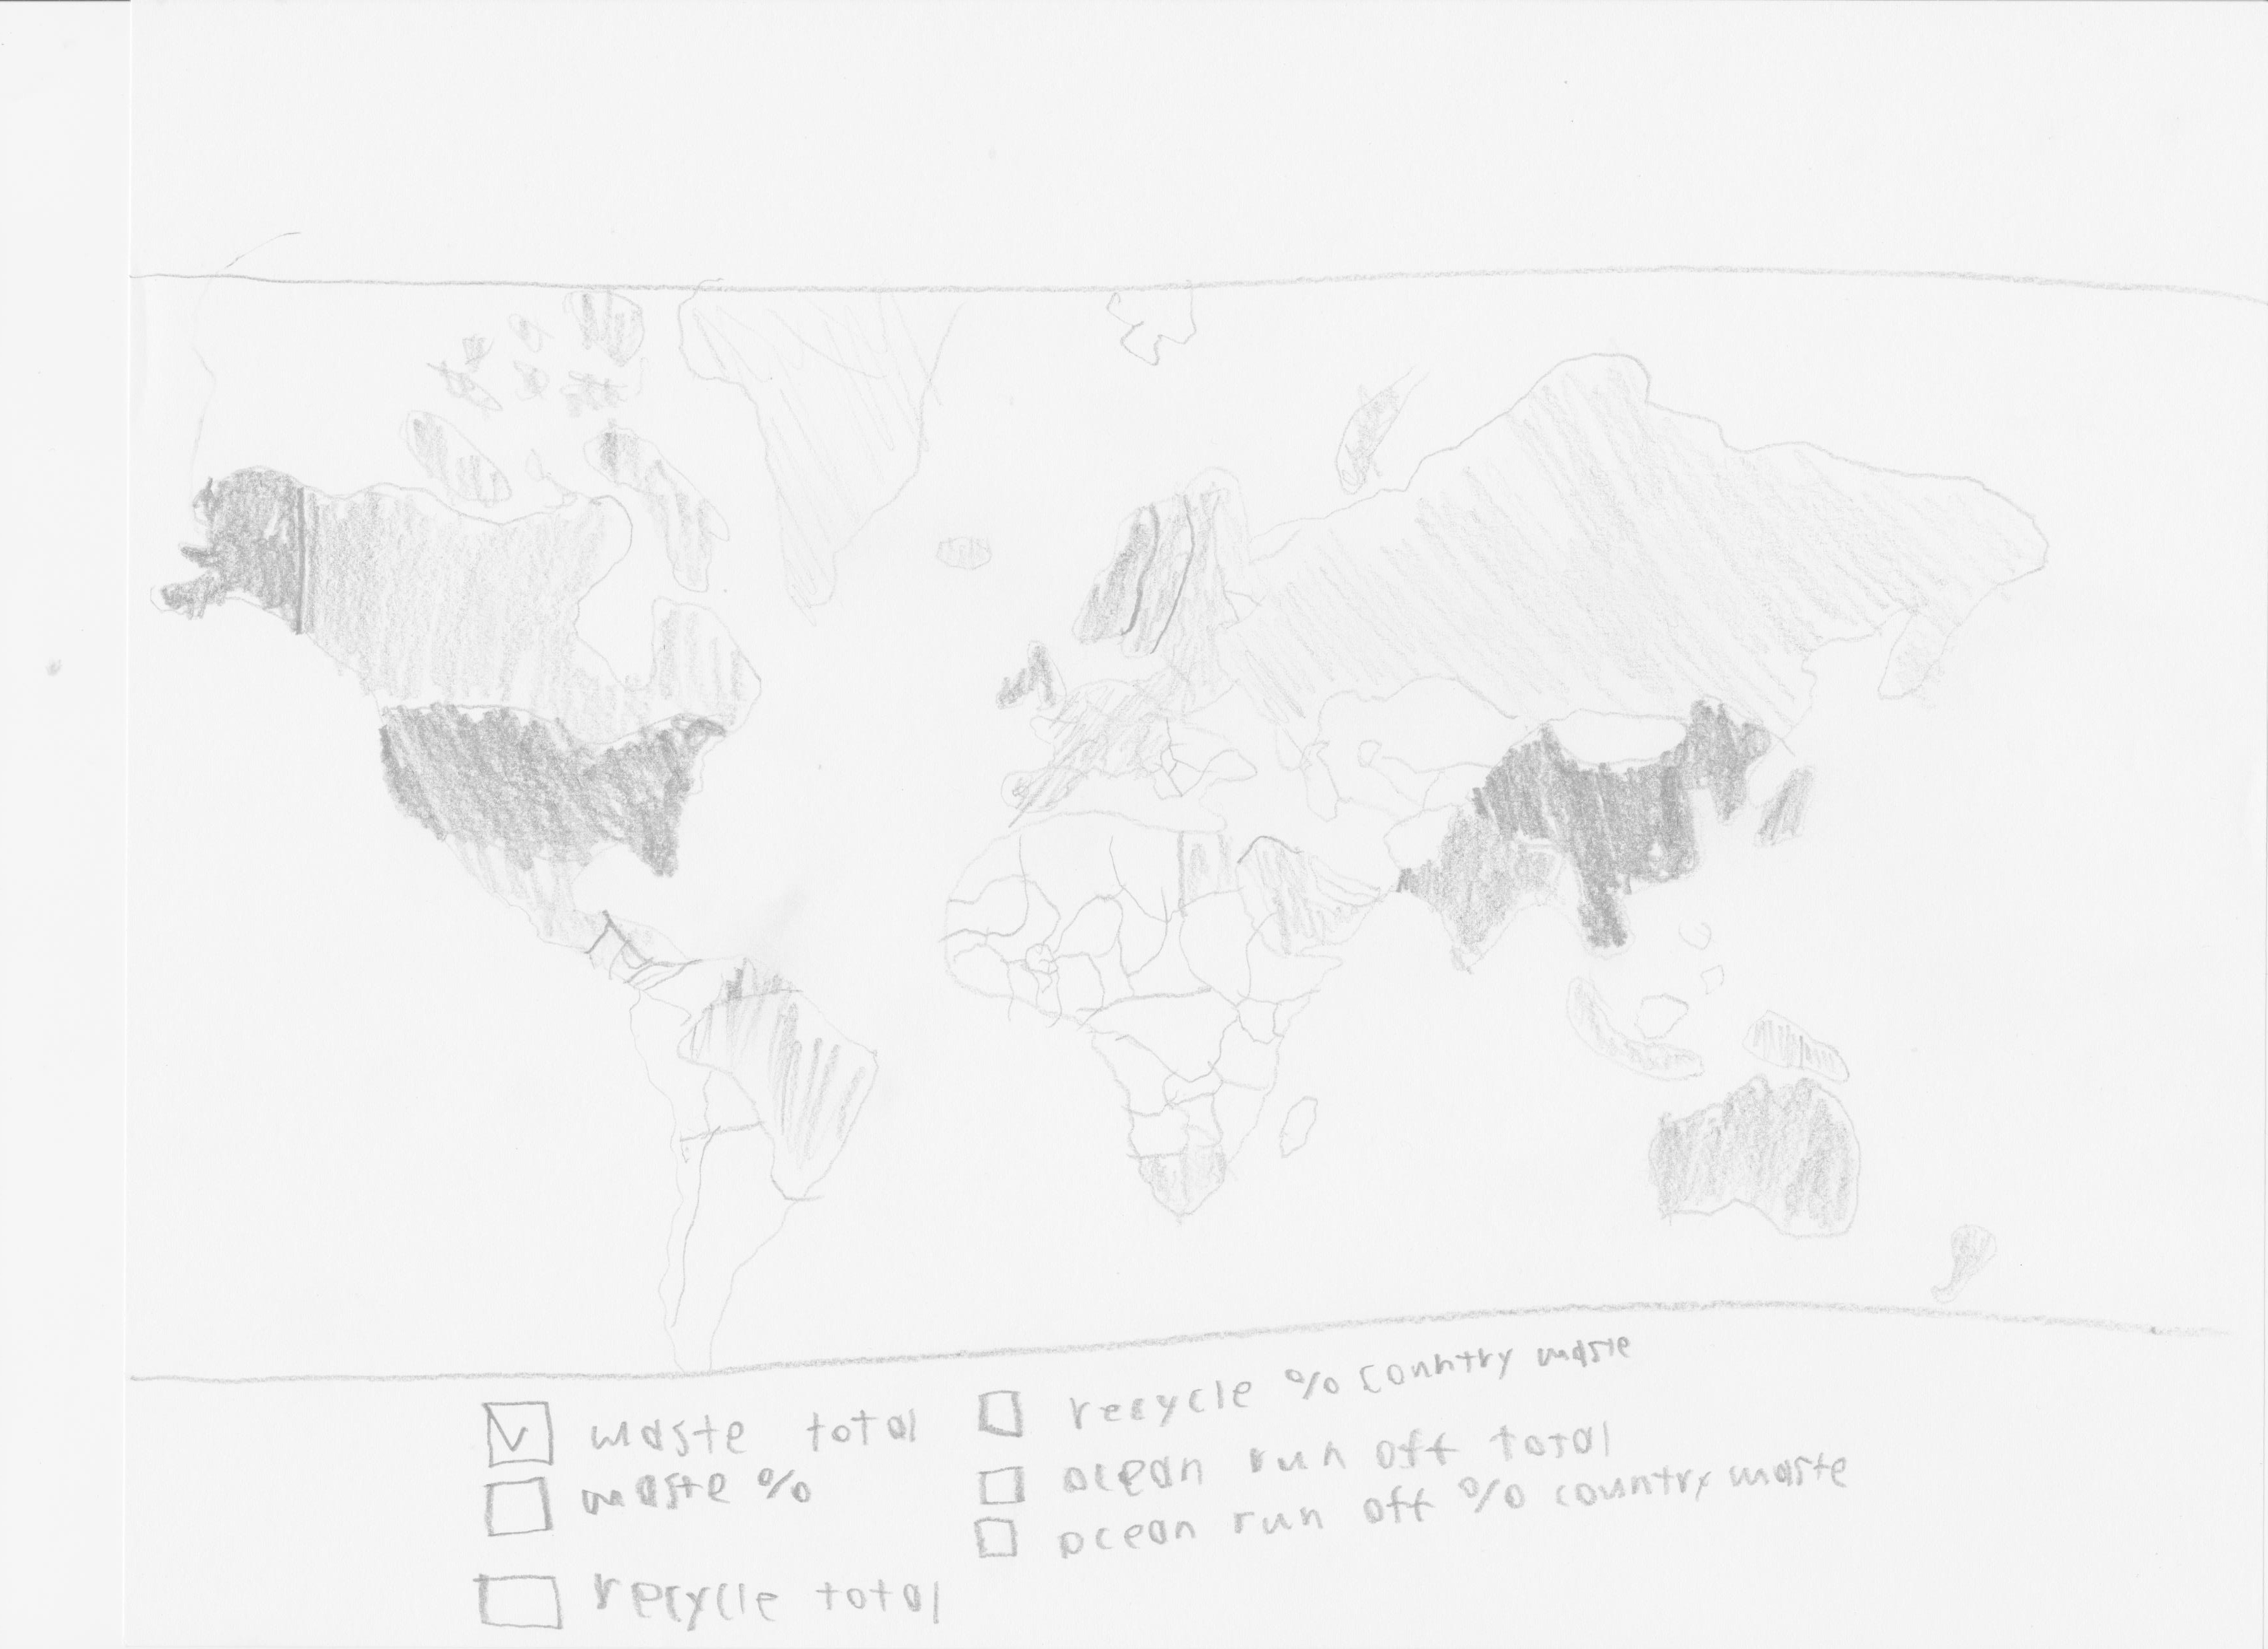 waste total
waste %
recycle total
recycle % country waste
ocean run off total
ocean run off % country waste